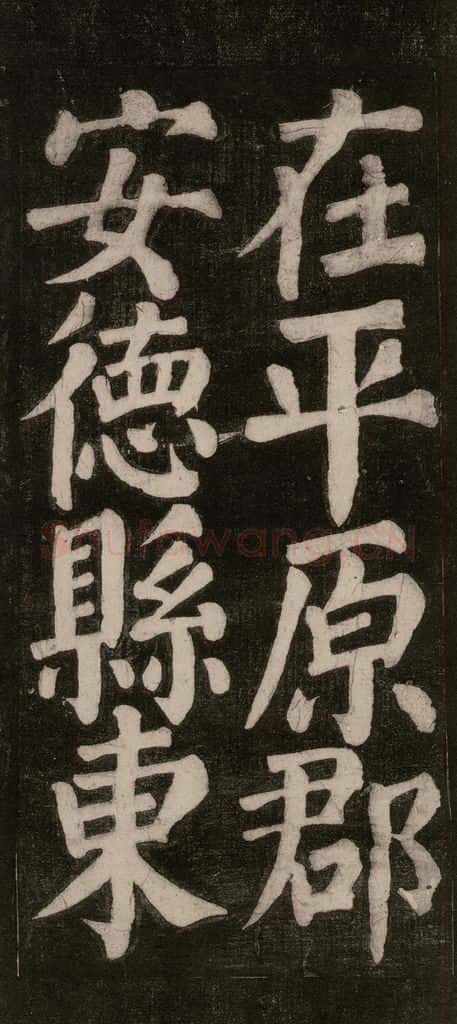 在平原郡
安德縣東
Shufawang.CN